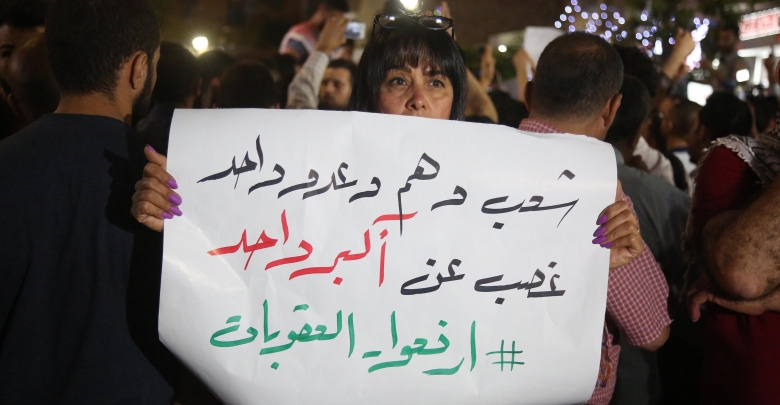 شعب وهم وعدو واحد
غصب عن أكبر واحد
#ارفعوا_العقوبات